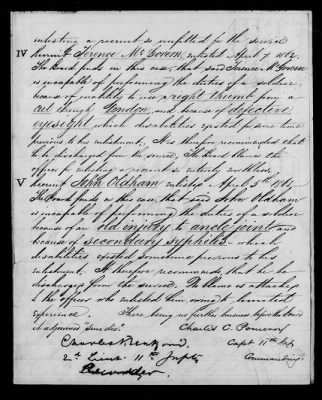 enlisting a recruit so unfitted for the service
IV recruit Terence McGovern, enlisted April 7, 1862.
The Board finds in this case, that said Terence McGovern
is incapable of performing the duties of a soldier
because of inability to use right thumb from a
cut through tendon, and because of defective
eyesight which disabilities existed for some time
previous to his enlistment. It is therefore recommended that
to be discharged from the service. The Board blames the
officer for enlisting a recruit so entirely worthless.
V recruit John Oldham enlisted April 5th 1862,
The Board finds in this case, that said John Oldham
is incapable of performing the duties of a soldier
because of an old injury to ancle joint and
because of secondary syphilis which
disabilities existed sometime previous to his
enlistment. It therefore recommends that he be
discharged from the service. No blame is attached
to the officer who enlisted him owing to limited
experience. There being no further business before the board
it adjourned "sine die". Charles C. Pomeroy
Capt 11th Inf.
Commanding.
2d Lieut 11th Infty
Recorder.